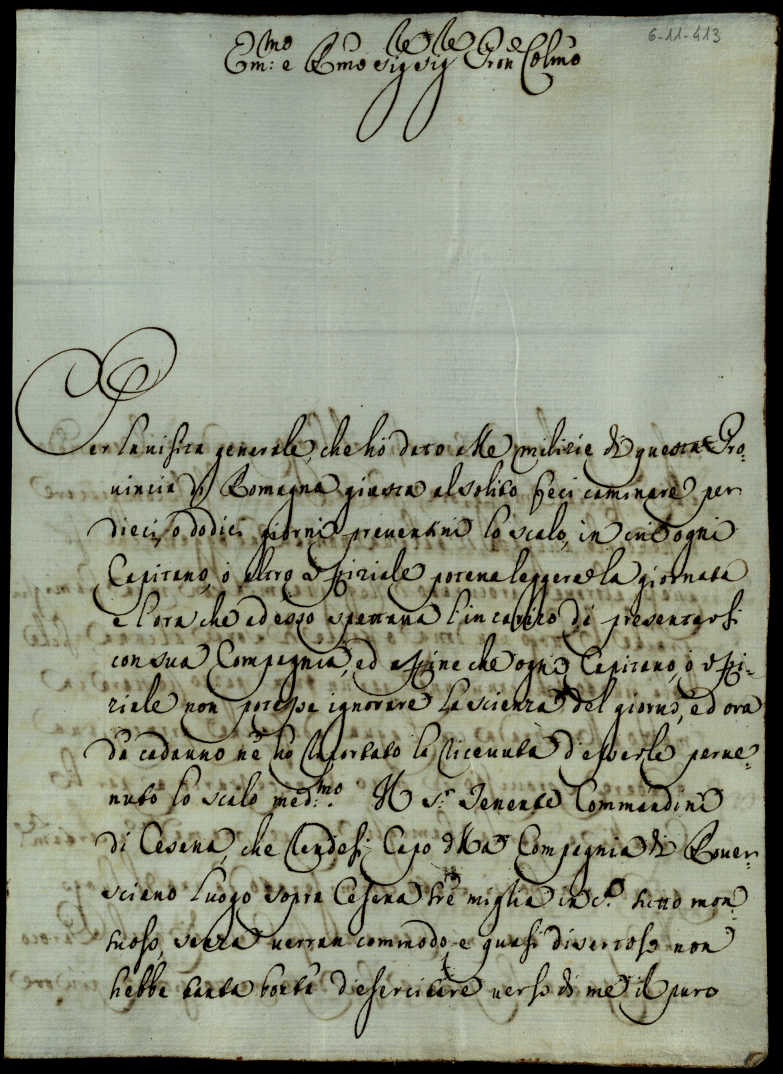 6-11-413
Em:mo e Rmo Sig Sig Pron Colmo
Per la visita generale, che hò dato alle milizie di questa Pro-
vincia di Romagna giusta al solito feci caminare per
dieci, o dodici giorni preventivi lo scalo, in cui ogni
Capitano, ò altro Offiziale poteva leggere la giornata
e l'ora che ad esso spettava l'incarico di presentarsi
con sua Compagnia, ed affine che ogni Capitano, ò Offi-
ziale non potesse ignorare la scienza del giorno, ed ora
dà cadauno nè hò riportato la ricevuta d'esserle perve-
nuto lo scalo med:mo. Il Sr Tenente Commandini
di Cesena, che rendesi Capo della Compagnia di Rover-
sciano luogo sopra Cesena trè miglia in ca tutto mon-
tuoso, senza verran commodo e quasi disastroso non
hebbe tanta bontà d'esercitare verso di me il puro